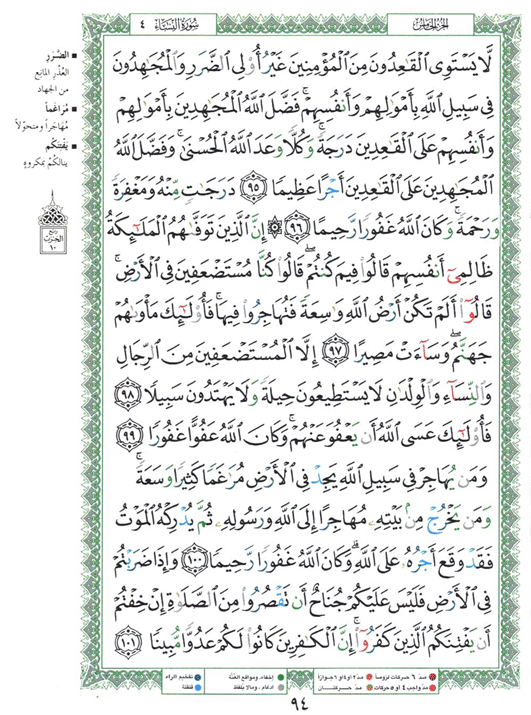 الجزء الخامس
سورة النساء ٤
لَّا يَسْتَوِى الْقَٰعِدُونَ مِنَ الْمُؤْمِنِينَ غَيْرُ أُو۟لِى الضَّرَرِ وَالْمُجَٰهِدُونَ
فِى سَبِيلِ اللَّهِ بِأَمْوَٰلِهِمْ وَأَنفُسِهِمْ ۚ فَضَّلَ اللَّهُ الْمُجَٰهِدِينَ بِأَمْوَٰلِهِمْ
وَأَنفُسِهِمْ عَلَى الْقَٰعِدِينَ دَرَجَةً ۚ وَكُلًّا وَعَدَ اللَّهُ الْحُسْنَىٰ ۚ وَفَضَّلَ اللَّهُ
الْمُجَٰهِدِينَ عَلَى الْقَٰعِدِينَ أَجْرًا عَظِيمًا ٩٥ دَرَجَٰتٍ مِّنْهُ وَمَغْفِرَةً
وَرَحْمَةً ۚ وَكَانَ اللَّهُ غَفُورًا رَّحِيمًا ٩٦ ۞ إِنَّ الَّذِينَ تَوَفَّىٰهُمُ الْمَلَٰٓئِكَةُ
ظَالِمِىٓ أَنفُسِهِمْ قَالُوا۟ فِيمَ كُنتُمْ ۖ قَالُوا۟ كُنَّا مُسْتَضْعَفِينَ فِى الْأَرْضِ ۚ
قَالُوٓا۟ أَلَمْ تَكُنْ أَرْضُ اللَّهِ وَٰسِعَةً فَتُهَاجِرُوا۟ فِيهَا ۚ فَأُو۟لَٰٓئِكَ مَأْوَىٰهُمْ
جَهَنَّمُ ۖ وَسَآءَتْ مَصِيرًا ٩٧ إِلَّا الْمُسْتَضْعَفِينَ مِنَ الرِّجَالِ
وَالنِّسَآءِ وَالْوِلْدَٰنِ لَا يَسْتَطِيعُونَ حِيلَةً وَلَا يَهْتَدُونَ سَبِيلًا ٩٨
فَأُو۟لَٰٓئِكَ عَسَى اللَّهُ أَن يَعْفُوَ عَنْهُمْ ۚ وَكَانَ اللَّهُ عَفُوًّا غَفُورًا ٩٩
وَمَن يُهَاجِرْ فِى سَبِيلِ اللَّهِ يَجِدْ فِى الْأَرْضِ مُرَٰغَمًا كَثِيرًا وَسَعَةً ۚ
وَمَن يَخْرُجْ مِنۢ بَيْتِهِۦ مُهَاجِرًا إِلَى اللَّهِ وَرَسُولِهِۦ ثُمَّ يُدْرِكْهُ الْمَوْتُ
فَقَدْ وَقَعَ أَجْرُهُۥ عَلَى اللَّهِ ۗ وَكَانَ اللَّهُ غَفُورًا رَّحِيمًا ١٠٠ وَإِذَا ضَرَبْتُمْ
فِى الْأَرْضِ فَلَيْسَ عَلَيْكُمْ جُنَاحٌ أَن تَقْصُرُوا۟ مِنَ الصَّلَوٰةِ إِنْ خِفْتُمْ
أَن يَفْتِنَكُمُ الَّذِينَ كَفَرُوٓا۟ ۚ إِنَّ الْكَٰفِرِينَ كَانُوا۟ لَكُمْ عَدُوًّا مُّبِينًا ١٠١
■ الضَّرَرِ
العُذْرِ المانِعِ
من الجهاد
■ مُرَاغَماً
مُهَاجَراً ومُتَحوَّلاً
■ يَفْتِنَكُم
يَنالَكُمْ بمكروهٍ
ربع
الحزب
١٠
مد ٦ حركات لزوماً مد ٢ أو ٤ أو ٦ جوازاً إخفاء، ومواقع الغُنَّة تفخيم الراء
مدّ واجب ٤ أو ٥ حركات مد حركتان إدغام، وما لا يُلفَظ قلقلة
٩٤